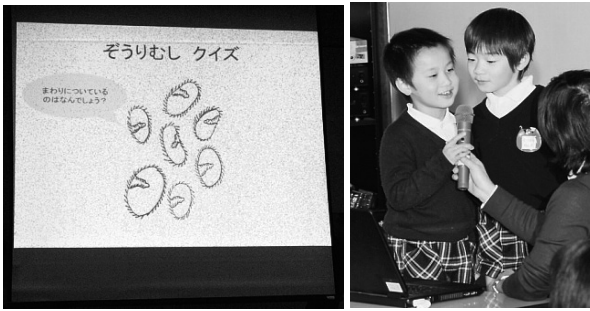 ぞうりむし クイズ
まわりについている
のはなんでしょう?